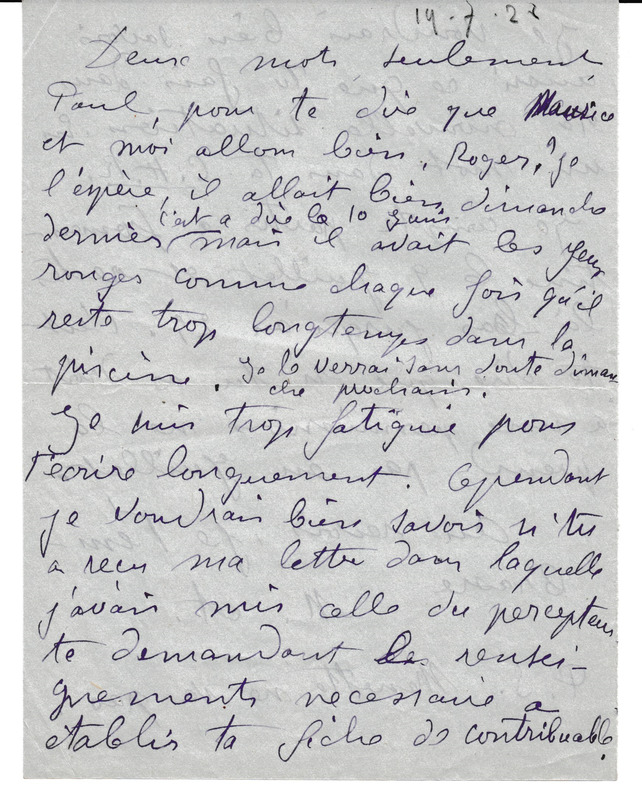 19.7.22
Deux mots seulement
Paul, pour te dire que Maurice
et moi allons bien, Roger, ? je
l'espère, il allait bien dimanche
c'est a dire le 10
dernier mais il avait les yeux
rouges comme chaque fois qu'il
reste trop longtemps dans la
piscine. Je le verrai sans doute diman
che prochain.
Je suis trop fatiguée pour
t'écrire longuement. Cependant
je voudrais bien savoir si tu
a reçu ma lettre dans laquelle
j'avais mis celle du percepteur
te demandant les rensei-
gnements necessaire a
établir ta fiche de contribuable.